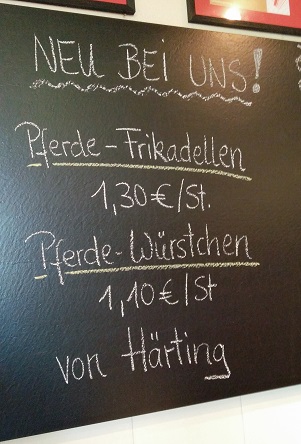 NEU BEI UNS!
Pferde-Frikadellen
1,30€/St.
Pferde-Würstchen
1,10€/St
von Härting